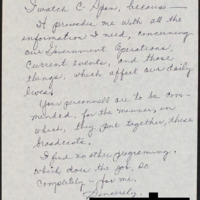 I watch C Span, because —
It provides me with all the
information I need, concerning
our Government Operations,
Current events, and those
things, which affect our daily
lives.
Your personnell are to be com-
mended, for the manner, in
which, they put together, these
broadcasts.
I find no other programing,
which does the job, so
completely - for me.
Sincerely,